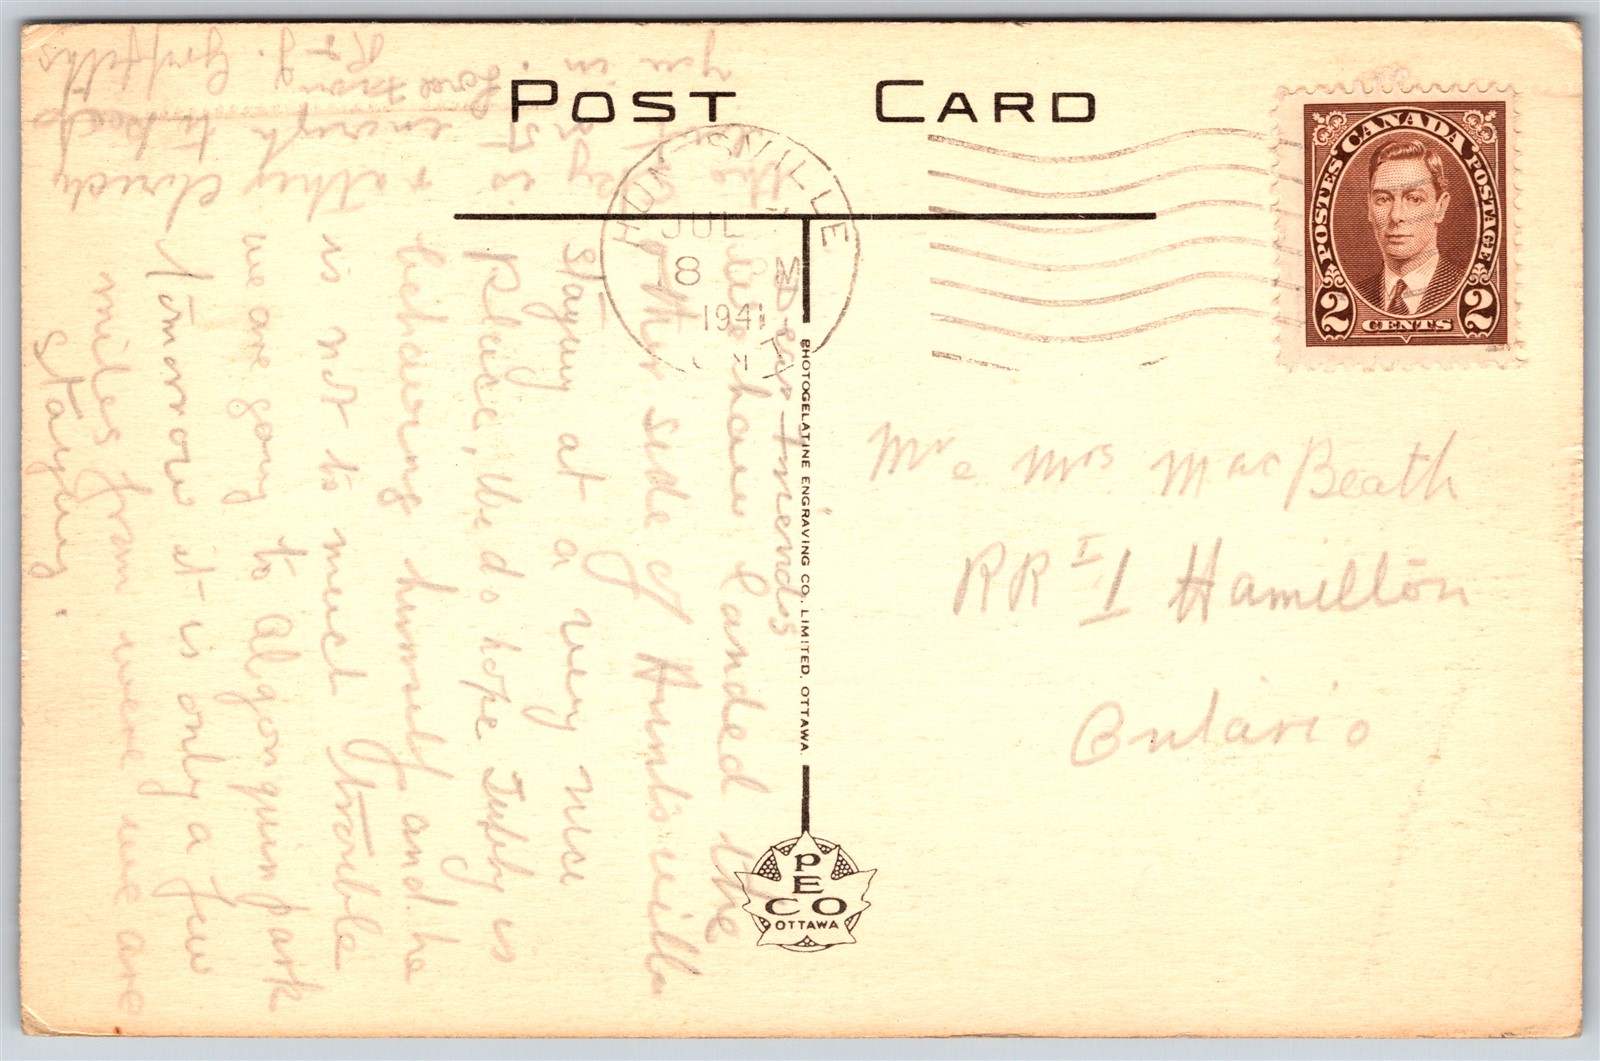 POST CARD
CANADA
POSTES POSTAGE
2 CENTS 2
HUNTSVILLE
JUL
8
1941
Mr & Mrs MacBeath
RR 1 Hamilton
Ontario
PHOTOGELATINE ENGRAVING CO., LIMITED, OTTAWA
PECO
OTTAWA
Dear Friends
have landed the
other side of Huntsville
Staying at a very nice
place, We do hope Tubby is
behaving himself and he
is not to much trouble
we are going to algonquin park
Tomorrow it is only a few
miles from were we are
staying.
is rather cloudy
enough to keep
you in.
Love from
R & J. Griffiths